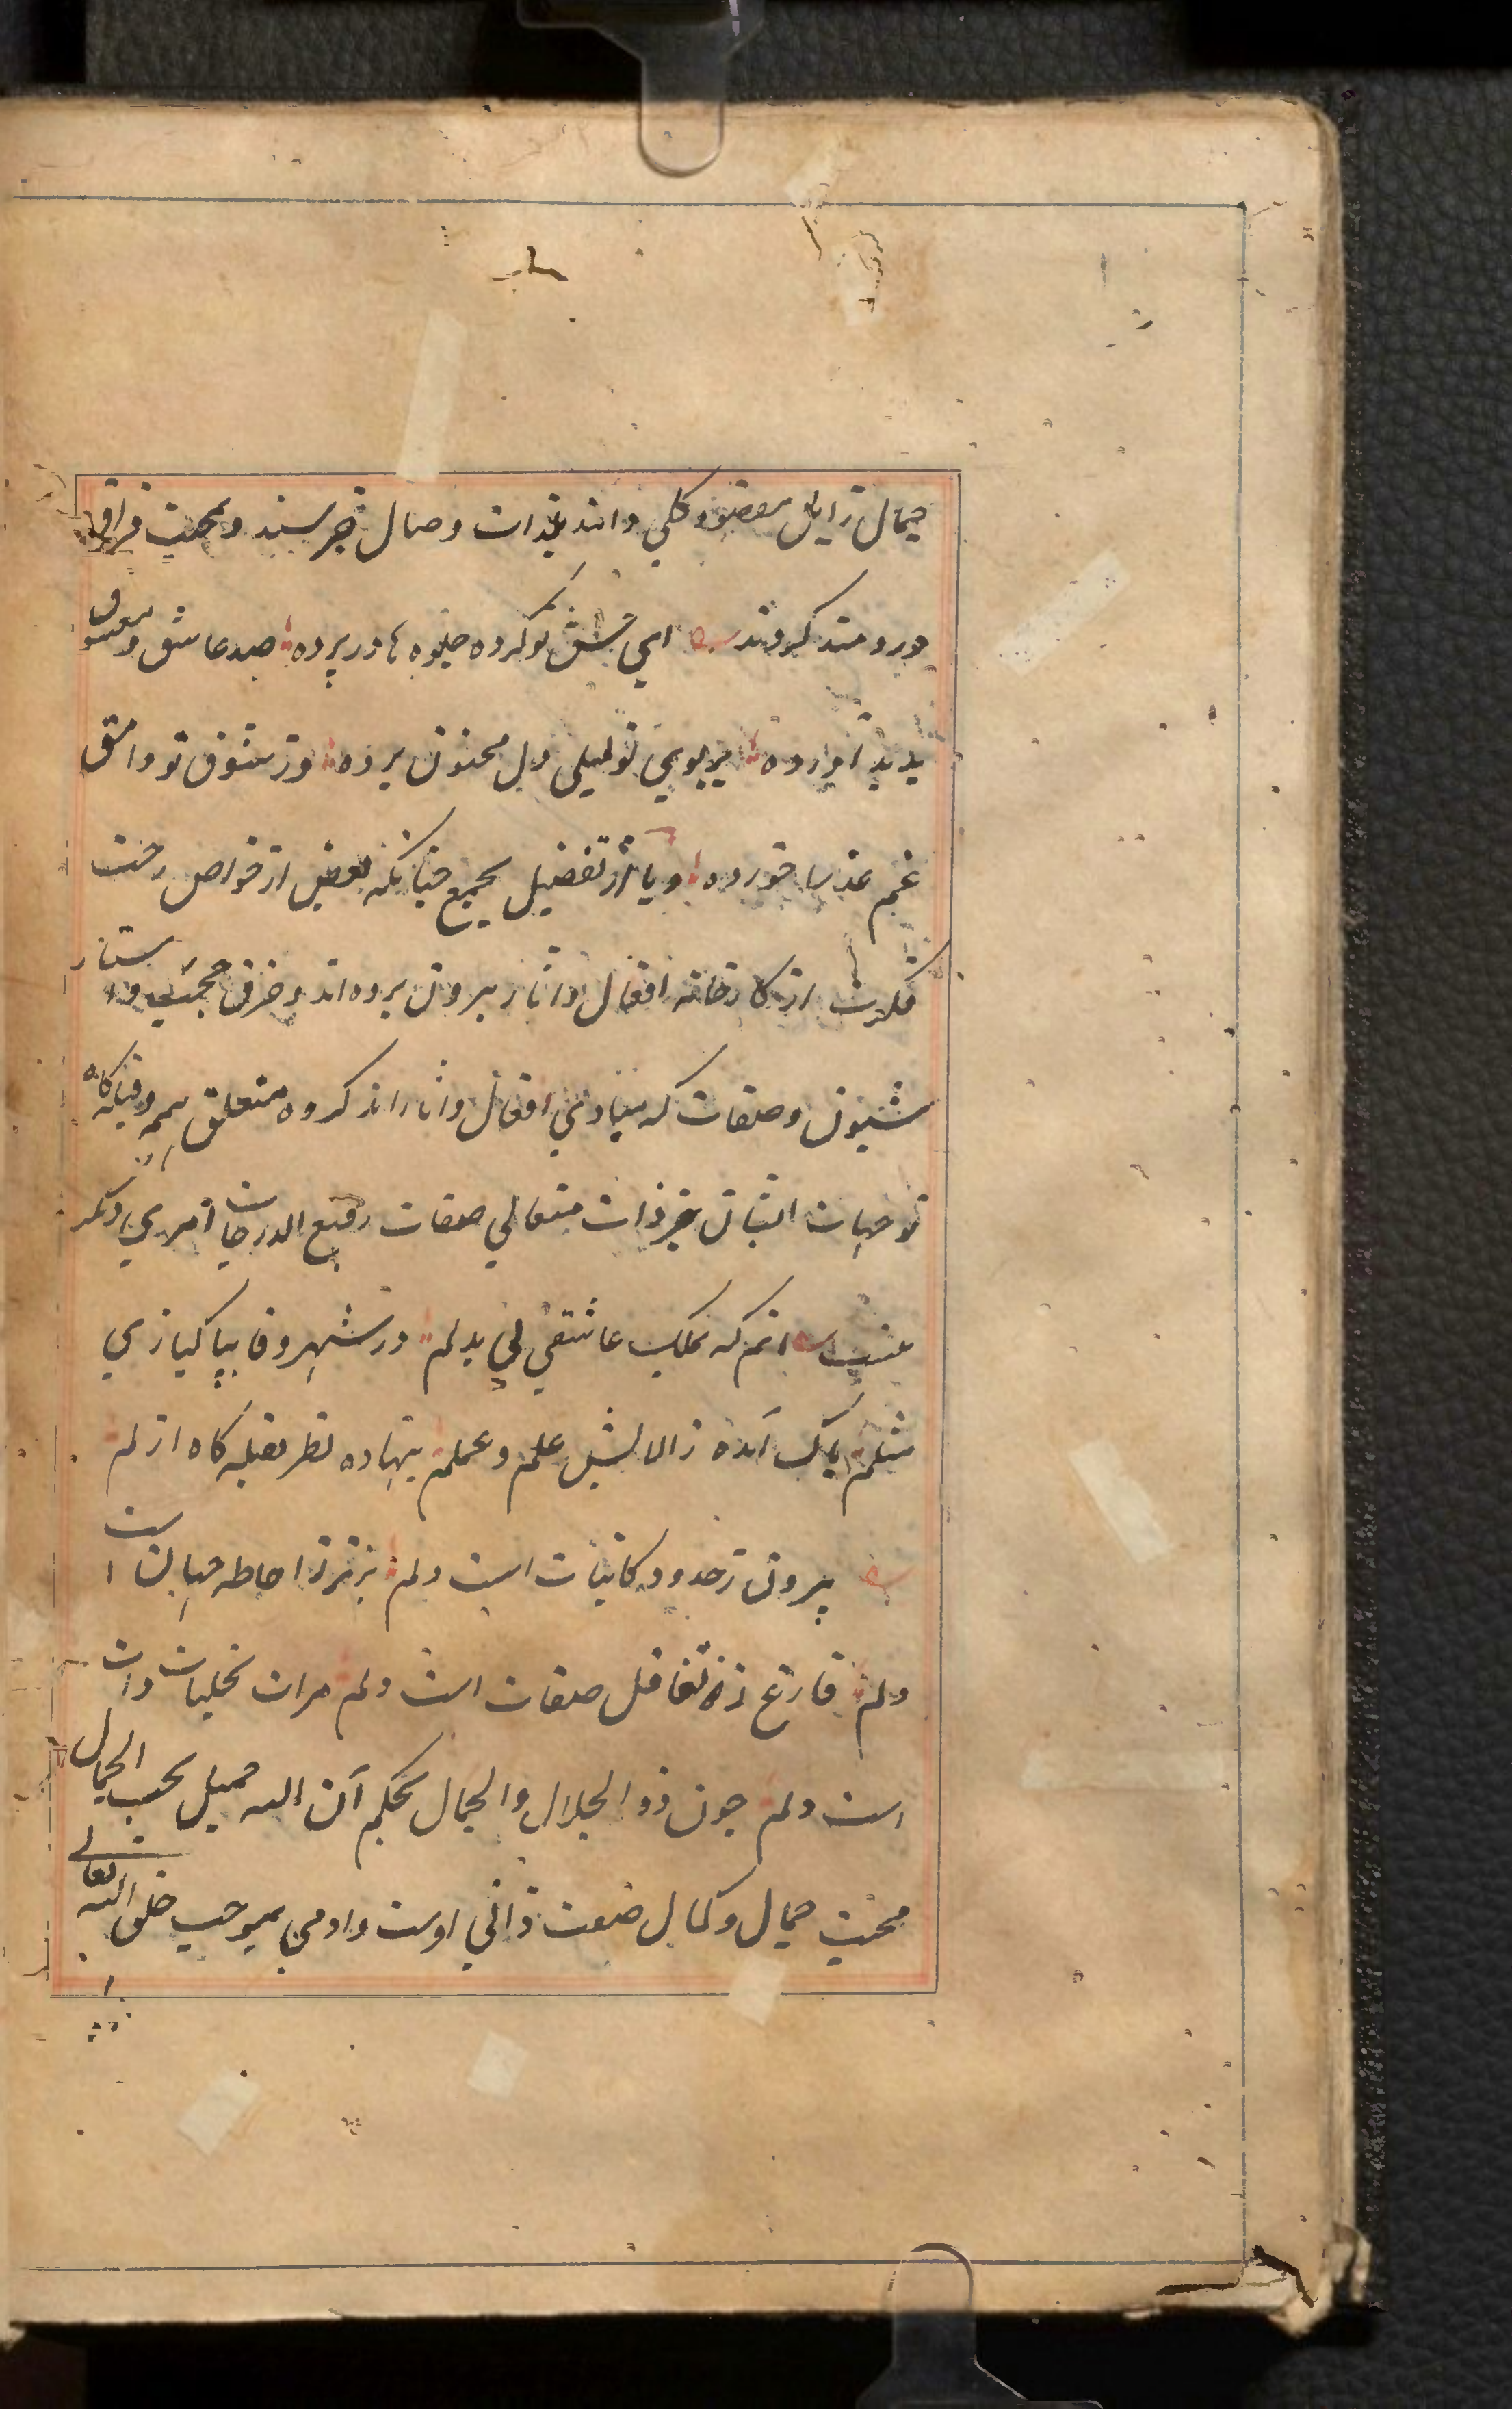 جمال زایل مقصود کلی دانند بلذات وصال خرسند و بمحنت فراق
دردمند گردند ای عشق تو کرده جلوه ها در پرده صد عاشق و معشوق
پدید آورده بر بوی تو لیلی دل مجنون برده وز شوق تو وامق
غم عذرا خورده و یا از تفصیل بجمع چنانکه بعضی از خواص رخت
فکرت از کارخانه افعال و اثار بیرون برده اند و خرق حجب و استار
شیون و صفات که مبادی افعال و اثاراند کرده متعلق همم و قبله گاه
توجهات ایشان جز ذات متعالی صفات رفیع الدرجات امری دیگر
نیست انم که بملک عاشقی بی بدلم در شهر وفا بپاکبازی
مثلم پاک آمده ز الایش علم و عملم بنهاده نظر بقبله کاه ازلم
بیرون ز حدود کاینات است دلم برتر ز احاطه جهات است
دلم فارغ ز تقابل صفات است دلم مرات تجلیات ذات
است دلم چون ذو الجلال والجمال بحکم آن الله جمیل یحب الجمال
محبت جمال و کمال صفت ذاتی اوست و ادمی بموجب خلق الله تعالی